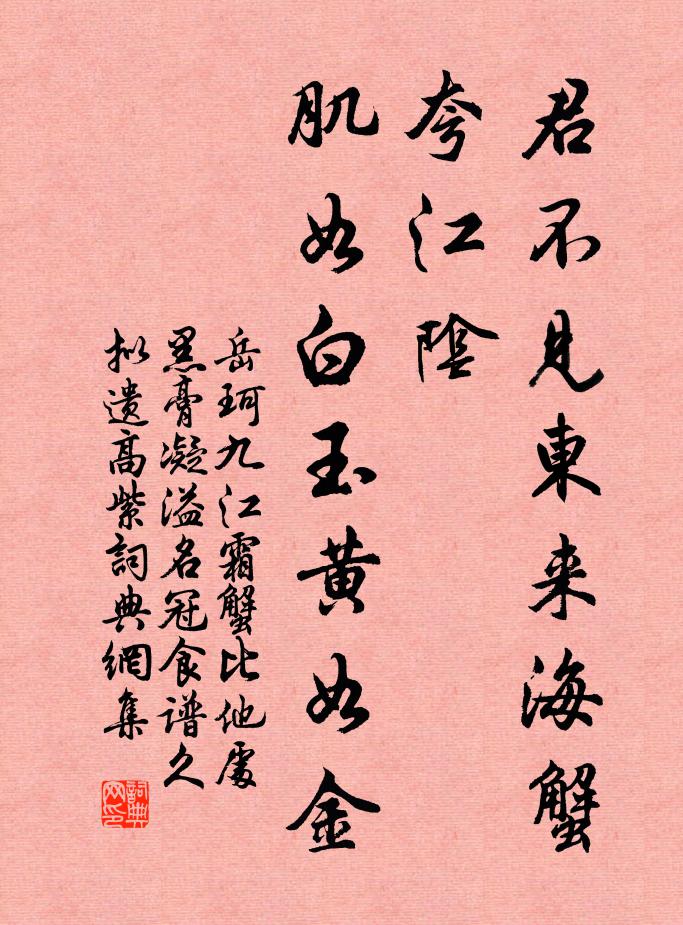 君不見東来海蟹
夸江陰
肌如白玉黄如金
岳珂九江霜蟹比他處
黑膏凝溢名冠食谱久
拟遗高紫詞典網集
詞典
网印